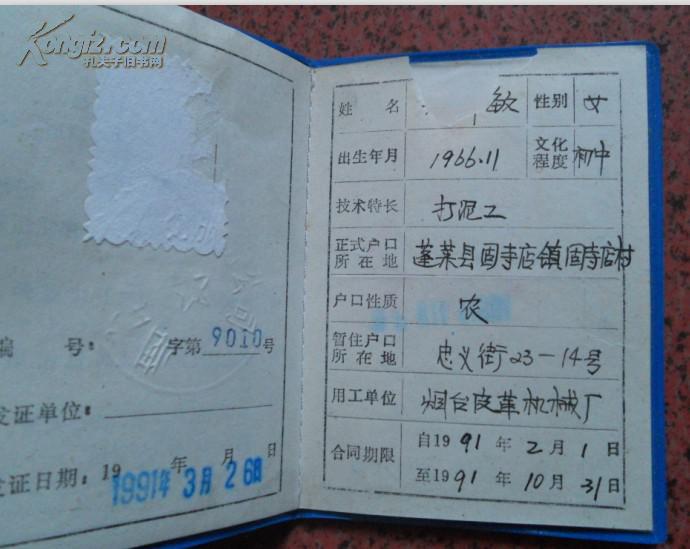 Kongfz.com
孔夫子旧书网
编 号：字第9010号
发证单位：
发证日期：19 年 月 日
1991年3月26日
姓 名 敏 性别 女
出生年月 1966.11 文化程度 初中
技术特长 打泥工
正式户口所在地 蓬莱县固寺店镇固寺店村
户口性质 农
暂住户口所在地 忠义街23-14号
用工单位 烟台皮革机械厂
合同期限 自1991年2月1日
至1991年10月31日